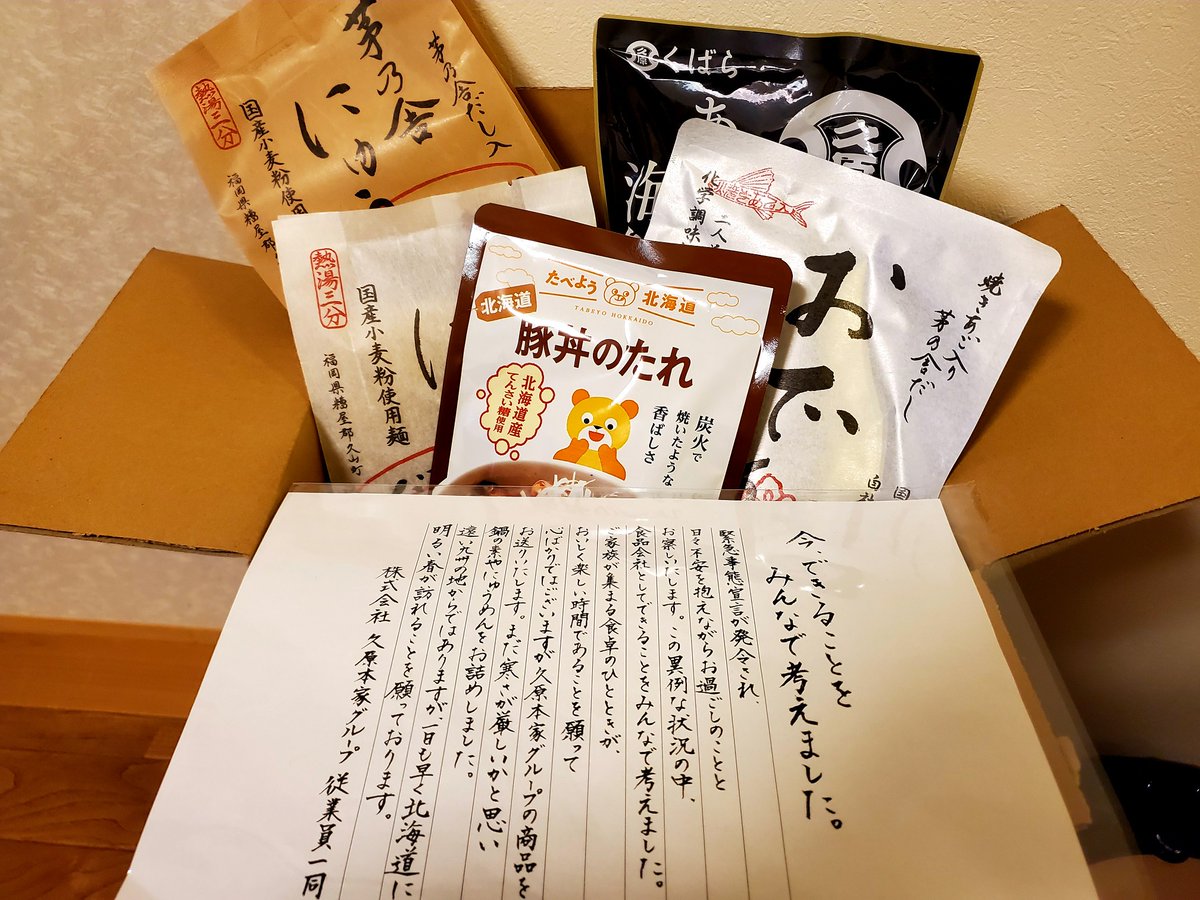 茅乃舎だし入
茅乃舎
にゅう
熱湯三分
国産小麦粉使用
福岡県糟屋郡
久原
くばら
あ
海
久原
熱湯三分
国産小麦粉使用麺
福岡県糟屋郡久山町
に
たべよう
北海道
TABEYO HOKKAIDO
北海道
豚丼のたれ
北海道産
てんさい糖使用
炭火で
焼いたような
香ばしさ
焼きあご入り
茅乃舎だし
おでん
二人
化学調味
国
自社
今、できることを
みんなで考えました。
緊急事態宣言が発令され、
日々不安を抱えながらお過ごしのことと
お察しいたします。この異例な状況の中、
食品会社としてできることをみんなで考えました。
ご家族が集まる食卓のひとときが、
おいしく楽しい時間であることを願って
心ばかりではございますが久原本家グループの商品を
お送りいたします。まだ寒さが厳しいかと思い
鍋の素やにゅうめんをお詰めしました。
遠い九州の地からではありますが、一日も早く北海道に
明るい春が訪れることを願っております。
株式会社 久原本家グループ 従業員一同